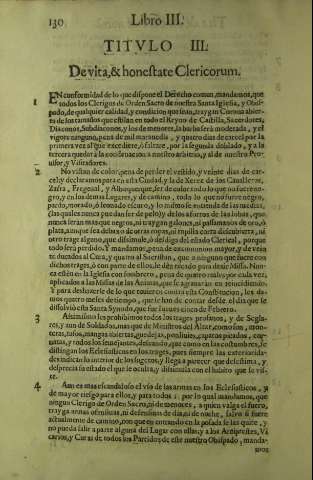 130 Libro III.
TITVLO III.
De vita, & honestate Clericorum.
1 EN conformidad de lo que dispone el Derecho comun, mandamos, que
todos los Clerigos de Orden Sacro de nuestra Santa Iglesia, y Obispado,
de qualquier calidad, y condicion que sean, traygan Corona abierta
de los tamaños que estilan en todo el Reyno de Castilla, Sacerdotes,
Diaconos, Subdiaconos, y los de menores, la barba será moderada, y el
vigote ninguno, pena de mil maravedis, y quatro dias de carcel por la
primera vez al que excediere, ò faltare, por la segunda doblado, y a la
tercera quedar a la
visor, y Visitadores.
2 No vistan de color, pena de perder el vestido, y veinte dias de carcel,
y declaramos para en esta Ciudad, y la de Xerez de los Cavalleros,
Zafra, Fregenal, y Alburquerque, ser de color todo lo que no fuere negro,
y en los demas Lugares, y de camino, todo lo que no fuere negro,
pardo, morado, ò honesto
(las quales nunca puedan ser de pelo) y de los aforros de las lobas, que
nunca sean mas que negros, ni traygan galones, ni passamanos de oro, ò
plata, aunque sea debaxo de otras ropas, ni
otro trage alguno, que dissimule, ò desdiga del estado Clerical, porque
todo será perdido. Y mandamos, pena de excomunion mayor, y de veinte
ducados al Cura, y quatro al Sacristan, que a ninguno que fuere con
dichos trages, ò con parte de ellos, le dèn recado para dezir Missa. Nunca
estèn en la Iglesia con sombrero, pena de quatro reales por cada vez,
aplicados a las Missas de las Animas, que se agravarán en reincidiendo.
Y para deshazerse de lo que tuvieren contra esta Constitucion, les damos
quatro meses de tiempo, que se han de contar desde el dia que se
dissolviò esta Santa Synodo, que fue Lunes cinco de Febrero.
3 Assimismo les prohibimos todos los trages profanos, y de Seglares,
y aun de Soldados, mas que de Ministros del Altar, como son, monteras,
tufos, mangas abiertas, guedejas, ponsiuies, capatos picados,
matas, y todos los semejantes, deseando, que como en las costumbres, se
distingan los Eclesiasticos en los trages, pues siempre las exterioridades
indican lo interior de los sugetos, y llega a parecer que desestima, y
desprecia su estado el que le oculta, y dissimula con el habito que se viste.
4 Aun es mas escandaloso el vso de las armas en los Eclesiasticos, y
de mayor riesgo para ellos, y para todos: por lo qual mandamos, que
ningun Clerigo de Orden Sacro, ni de menores, a quien valga el fuero,
trayga armas ofensivas, ni defensivas de dia, ni de noche, salvo si fuere
actualmente de camino, con que en entrando en la posada se las quite, y
no pueda salir a parte alguna del Lugar con ellas: y a los Arciprestes, Vicarios,
y Curas de todos los Partidos de este nuestro Obispado, manda-
mos